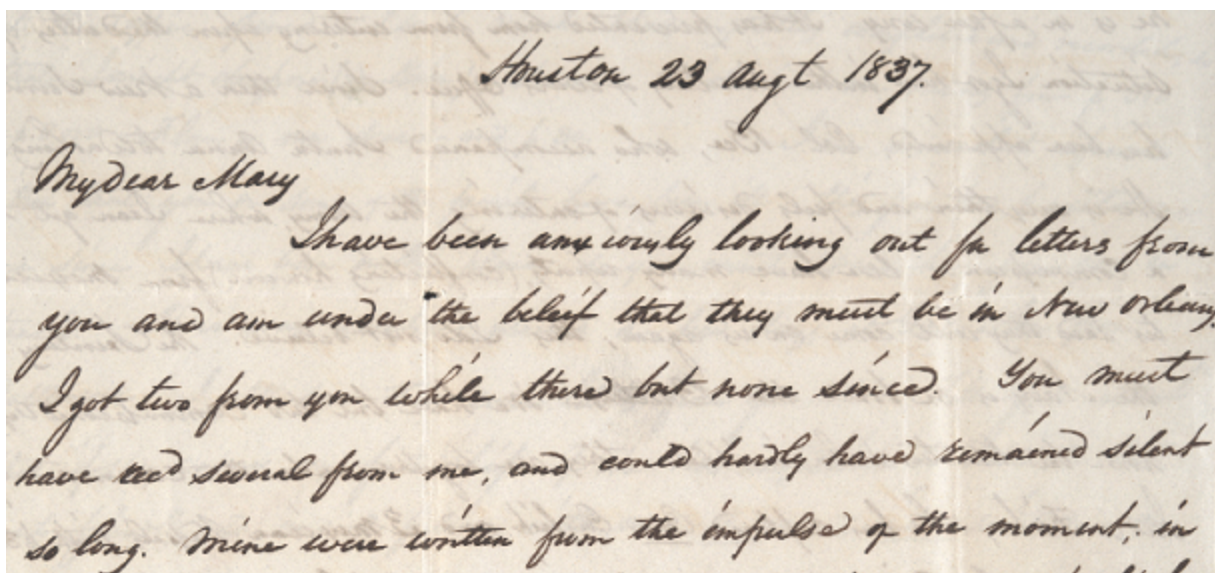 Houston 23 Augt 1837.
My Dear Mary
I have been anxiously looking out for letters from
you and am under the beleif that they must be in New Orleans,
I got two from you while there but none since. You must
have recd several from me, and could hardly have remained silent
so long. Mine were written from the impulse of the moment, in